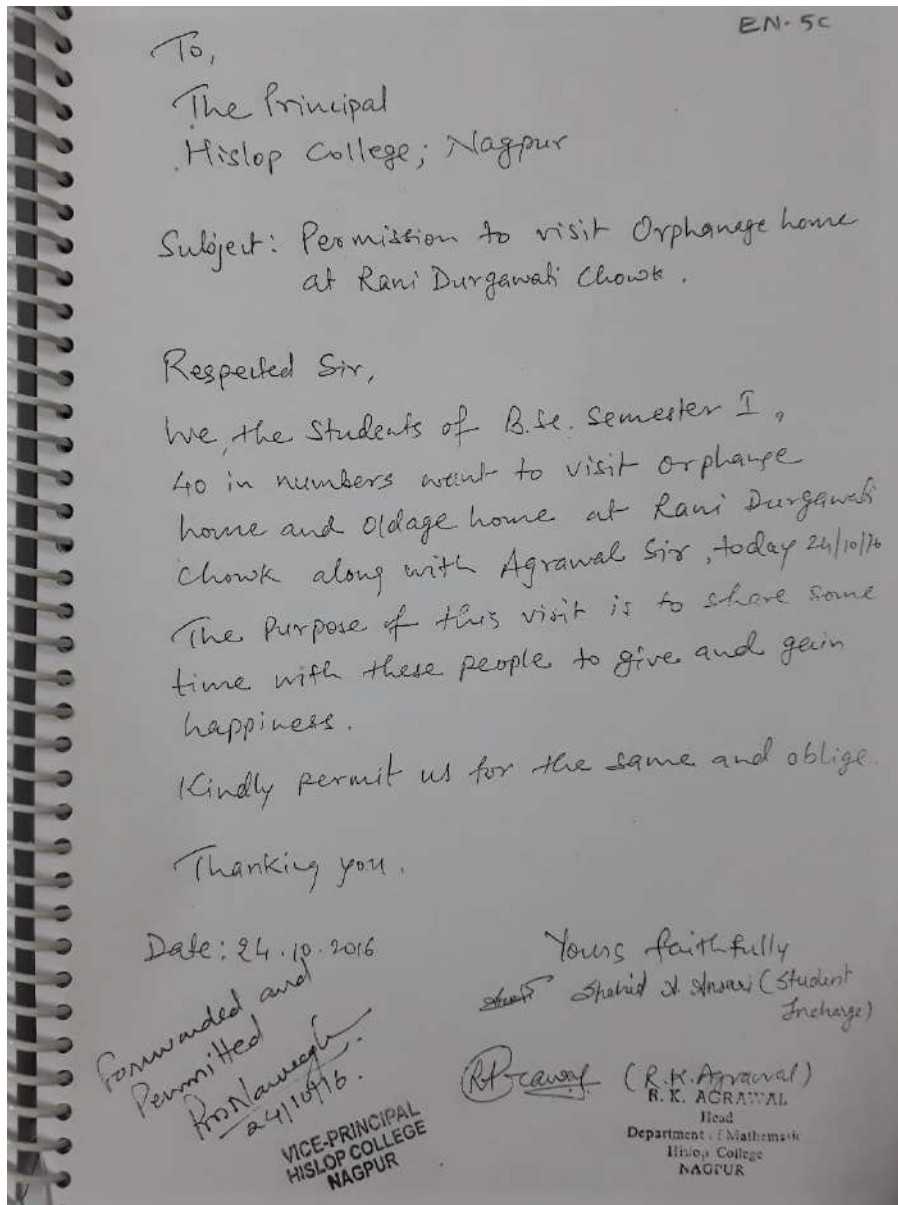 EN-5C
To,
The Principal
Hislop College; Nagpur
Subject: Permission to visit Orphanage home
at Rani Durgawati Chowk.
Respected Sir,
We, the Students of B.Sc. Semester I,
40 in numbers want to visit orphange
home and Oldage home at Rani Durgawati
Chowk along with Agrawal Sir, today 24/10/16
The purpose of this visit is to share some
time with these people to give and gain
happiness.
Kindly permit us for the same and oblige.
Thanking you.
Date: 24.10.2016
Yours faithfully
Shahid A Ansari (Student
Incharge)
Forwarded and
Permitted
24/10/16.
VICE-PRINCIPAL
HISLOP COLLEGE
NAGPUR
(R.K. Agrawal)
R. K. AGRAWAL
Head
Department of Mathematic
Hislop College
NAGPUR